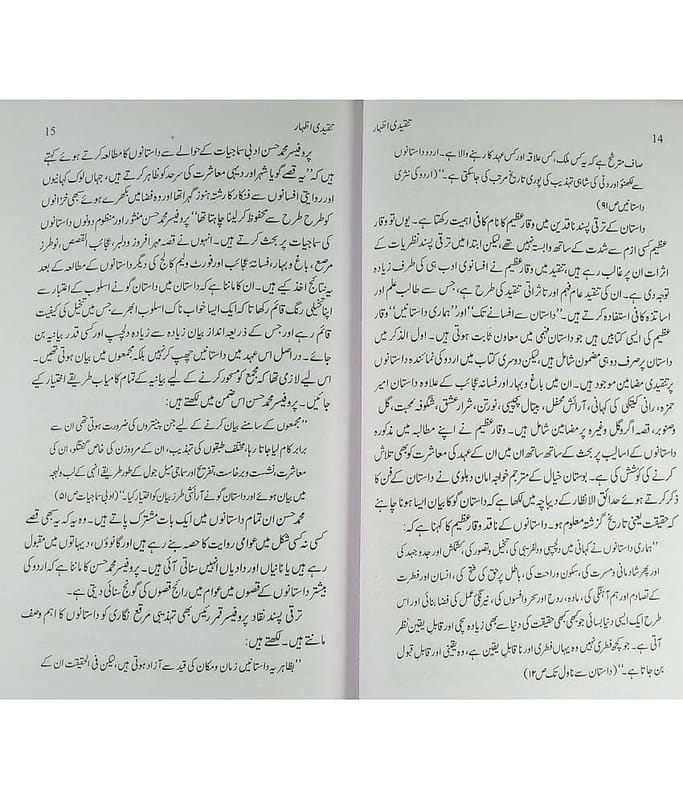 14
تنقیدی اظہار
صاف مترشح ہے کہ یہ کس ملک، کس علاقہ اور کس عہد کا رہنے والا ہے۔ اردو داستانوں
سے لکھنؤ اور دلی کی شاہی تہذیب کی پوری تاریخ مرتب کی جاسکتی ہے۔‘‘ (اردو کی نثری
داستانیں ص ۹۱)
داستان کے ترقی پسند ناقدین میں وقار عظیم کا نام کافی اہمیت رکھتا ہے۔ یوں تو وقار
عظیم کسی ازم سے شدت کے ساتھ وابستہ نہیں تھے، لیکن ابتدا میں ترقی پسند نظریات کے
اثرات ان پر غالب رہے ہیں، تنقید میں وقار عظیم نے افسانوی ادب ہی کی طرف زیادہ
توجہ دی ہے۔ ان کی تنقید عام فہم اور تاثراتی تنقید کی طرح ہے، جس سے طالب علم اور
اساتذہ کافی استفادہ کرتے ہیں۔ ’’داستان سے افسانے تک‘‘ اور ’’ہماری داستانیں‘‘ وقار
عظیم کی ایسی کتابیں ہیں جو داستان فہمی میں معاون ثابت ہوتی ہیں۔ اول الذکر میں
داستان پر صرف دو ہی مضمون شامل ہیں، لیکن دوسری کتاب میں اردو کی نمائندہ داستانوں
پر تنقیدی مضامین موجود ہیں۔ ان میں باغ و بہار اور فسانہ عجائب کے علاوہ داستان امیر
حمزہ، رانی کیتکی کی کہانی، آرائش محفل، بیتال پچیسی، نورتن، شرار عشق، شگوفہ محبت، گل
وصنوبر، قصہ اگر وگل وغیرہ پر مضامین شامل ہیں۔ وقار عظیم نے اپنے مطالبہ میں مذکورہ
داستانوں کے اسالیب پر بحث کے ساتھ ساتھ ان میں ان کے عہد کی معاشرت کو بھی تلاش
کرنے کی کوشش کی ہے۔ بوستان خیال کے مترجم خواجہ امان دہلوی نے داستان کے فن کا
ذکر کرتے ہوئے حدائق الانظار کے دیباچہ میں لکھا ہے کہ داستان گو کا بیان ایسا ہونا چاہئے
کہ حقیقت یعنی تاریخ گزشتہ معلوم ہو۔ داستانوں کے ناقد وقار عظیم کا کہنا ہے کہ:
’’ہماری داستانوں نے کہانی میں دلچسپی و دلفریبی کی، تخیل و تصور کی، کشمکش اور جدوجہد کی
اور پھر شادمانی و مسرت کی، سکون و راحت کی، باطل پر حق کی فتح کی، انسان اور فطرت
کے تصادم اور ہم آہنگی کی، مادہ، روح اور سحر و افسوں کی، نیرنگیٔ عمل کی فضا بنائی اور اس
طرح ایک ایسی دنیا بسائی جو کبھی کبھی حقیقت کی دنیا سے بھی زیادہ سچی اور قابل یقین نظر
آتی ہے۔ جو کچھ فطری نہیں وہ یہاں فطری اور نا قابل یقین ہے، وہ یقینی اور قابل قبول
بن جاتا ہے۔‘‘ (داستان سے ناول تک ص ۱۲)
تنقیدی اظہار
15
پروفیسر محمد حسن ادبی سماجیات کے حوالے سے داستانوں کا مطالعہ کرتے ہوئے کہتے
ہیں کہ ’’یہ قصے گویا شہر اور دیہی معاشرت کی سرحد کو ظاہر کرتے ہیں، جہاں لوک کہانیوں
اور روایتی افسانوں سے فنکار کا رشتہ ہنوز گہرا تھا اور وہ فضا میں بکھرے ہوئے سبھی خزانوں
کو طرح طرح سے محفوظ کر لینا چاہتا تھا‘‘ پروفیسر محمد حسن منثور اور منظوم دونوں داستانوں
کی سماجیات پر بحث کرتے ہیں۔ انہوں نے قصہ مہر افروز و دلبر، عجائب القصص، نوطرز
مرصع، باغ و بہار، فسانہ عجائب اور فورٹ ولیم کالج کی دیگر داستانوں کے مطالعہ کے بعد
یہ نتائج اخذ کیے ہیں۔ ان کا ماننا ہے کہ داستان میں داستان گو نے اسلوب کے اعتبار سے
اپنا تخیلی رنگ قائم رکھا تا کہ ایک ایسا خواب ناک اسلوب ابھرے جس میں تخیل کی کیفیت
قائم رہے اور جس کے ذریعہ انداز بیان زیادہ سے زیادہ دلچسپ اور کسی قدر بیانیہ بن
جائے۔ دراصل اس عہد میں داستانیں چھپ کر نہیں بلکہ مجمعوں میں بیان ہوتی تھیں۔
اس لیے لازمی تھا کہ مجمع کو مسحور کرنے کے لیے بیانیہ کے تمام کامیاب طریقے اختیار کیے
جائیں۔ پروفیسر محمد حسن اس ضمن میں لکھتے ہیں:
’’مجمعوں کے سامنے بیان کرنے کے لیے جن پینتروں کی ضرورت ہوتی تھی ان سے
برابر کام لیا جاتا رہا، مختلف طبقوں کی تہذیب، ان کے مردوزن کی خاص گفتگو، ان کی
معاشرت، نشست و برخاست، تفریح اور سماجی میل جول کے طور طریقے انہی کے لب و لہجہ
میں بیان ہوئے اور داستان گو نے آرائشی طرز بیان کو اختیار کیا۔‘‘ (ادبی سماجیات ص ۵۱)
محمد حسن ان تمام داستانوں میں ایک بات مشترک پاتے ہیں۔ وہ یہ کہ یہ بھی قصے
کسی نہ کسی شکل میں عوامی روایت کا حصہ بنے رہے ہیں اور گانوؤں، دیہاتوں میں مقبول
رہے ہیں یا نانیاں اور دادیاں انہیں سناتی آئی ہیں۔ پروفیسر محمد حسن کا ماننا ہے کہ اردو کی
بیشتر داستانوں کے قصوں میں عوام میں رائج قصوں کی گونج سنائی دیتی ہے۔
ترقی پسند نقاد پروفیسر قمر رئیس بھی تہذیبی مرقع نگاری کو داستانوں کا اہم وصف
مانتے ہیں۔ لکھتے ہیں:
’’بظاہر یہ داستانیں زمان و مکان کی قید سے آزاد ہوتی ہیں، لیکن فی الحقیقت ان کے